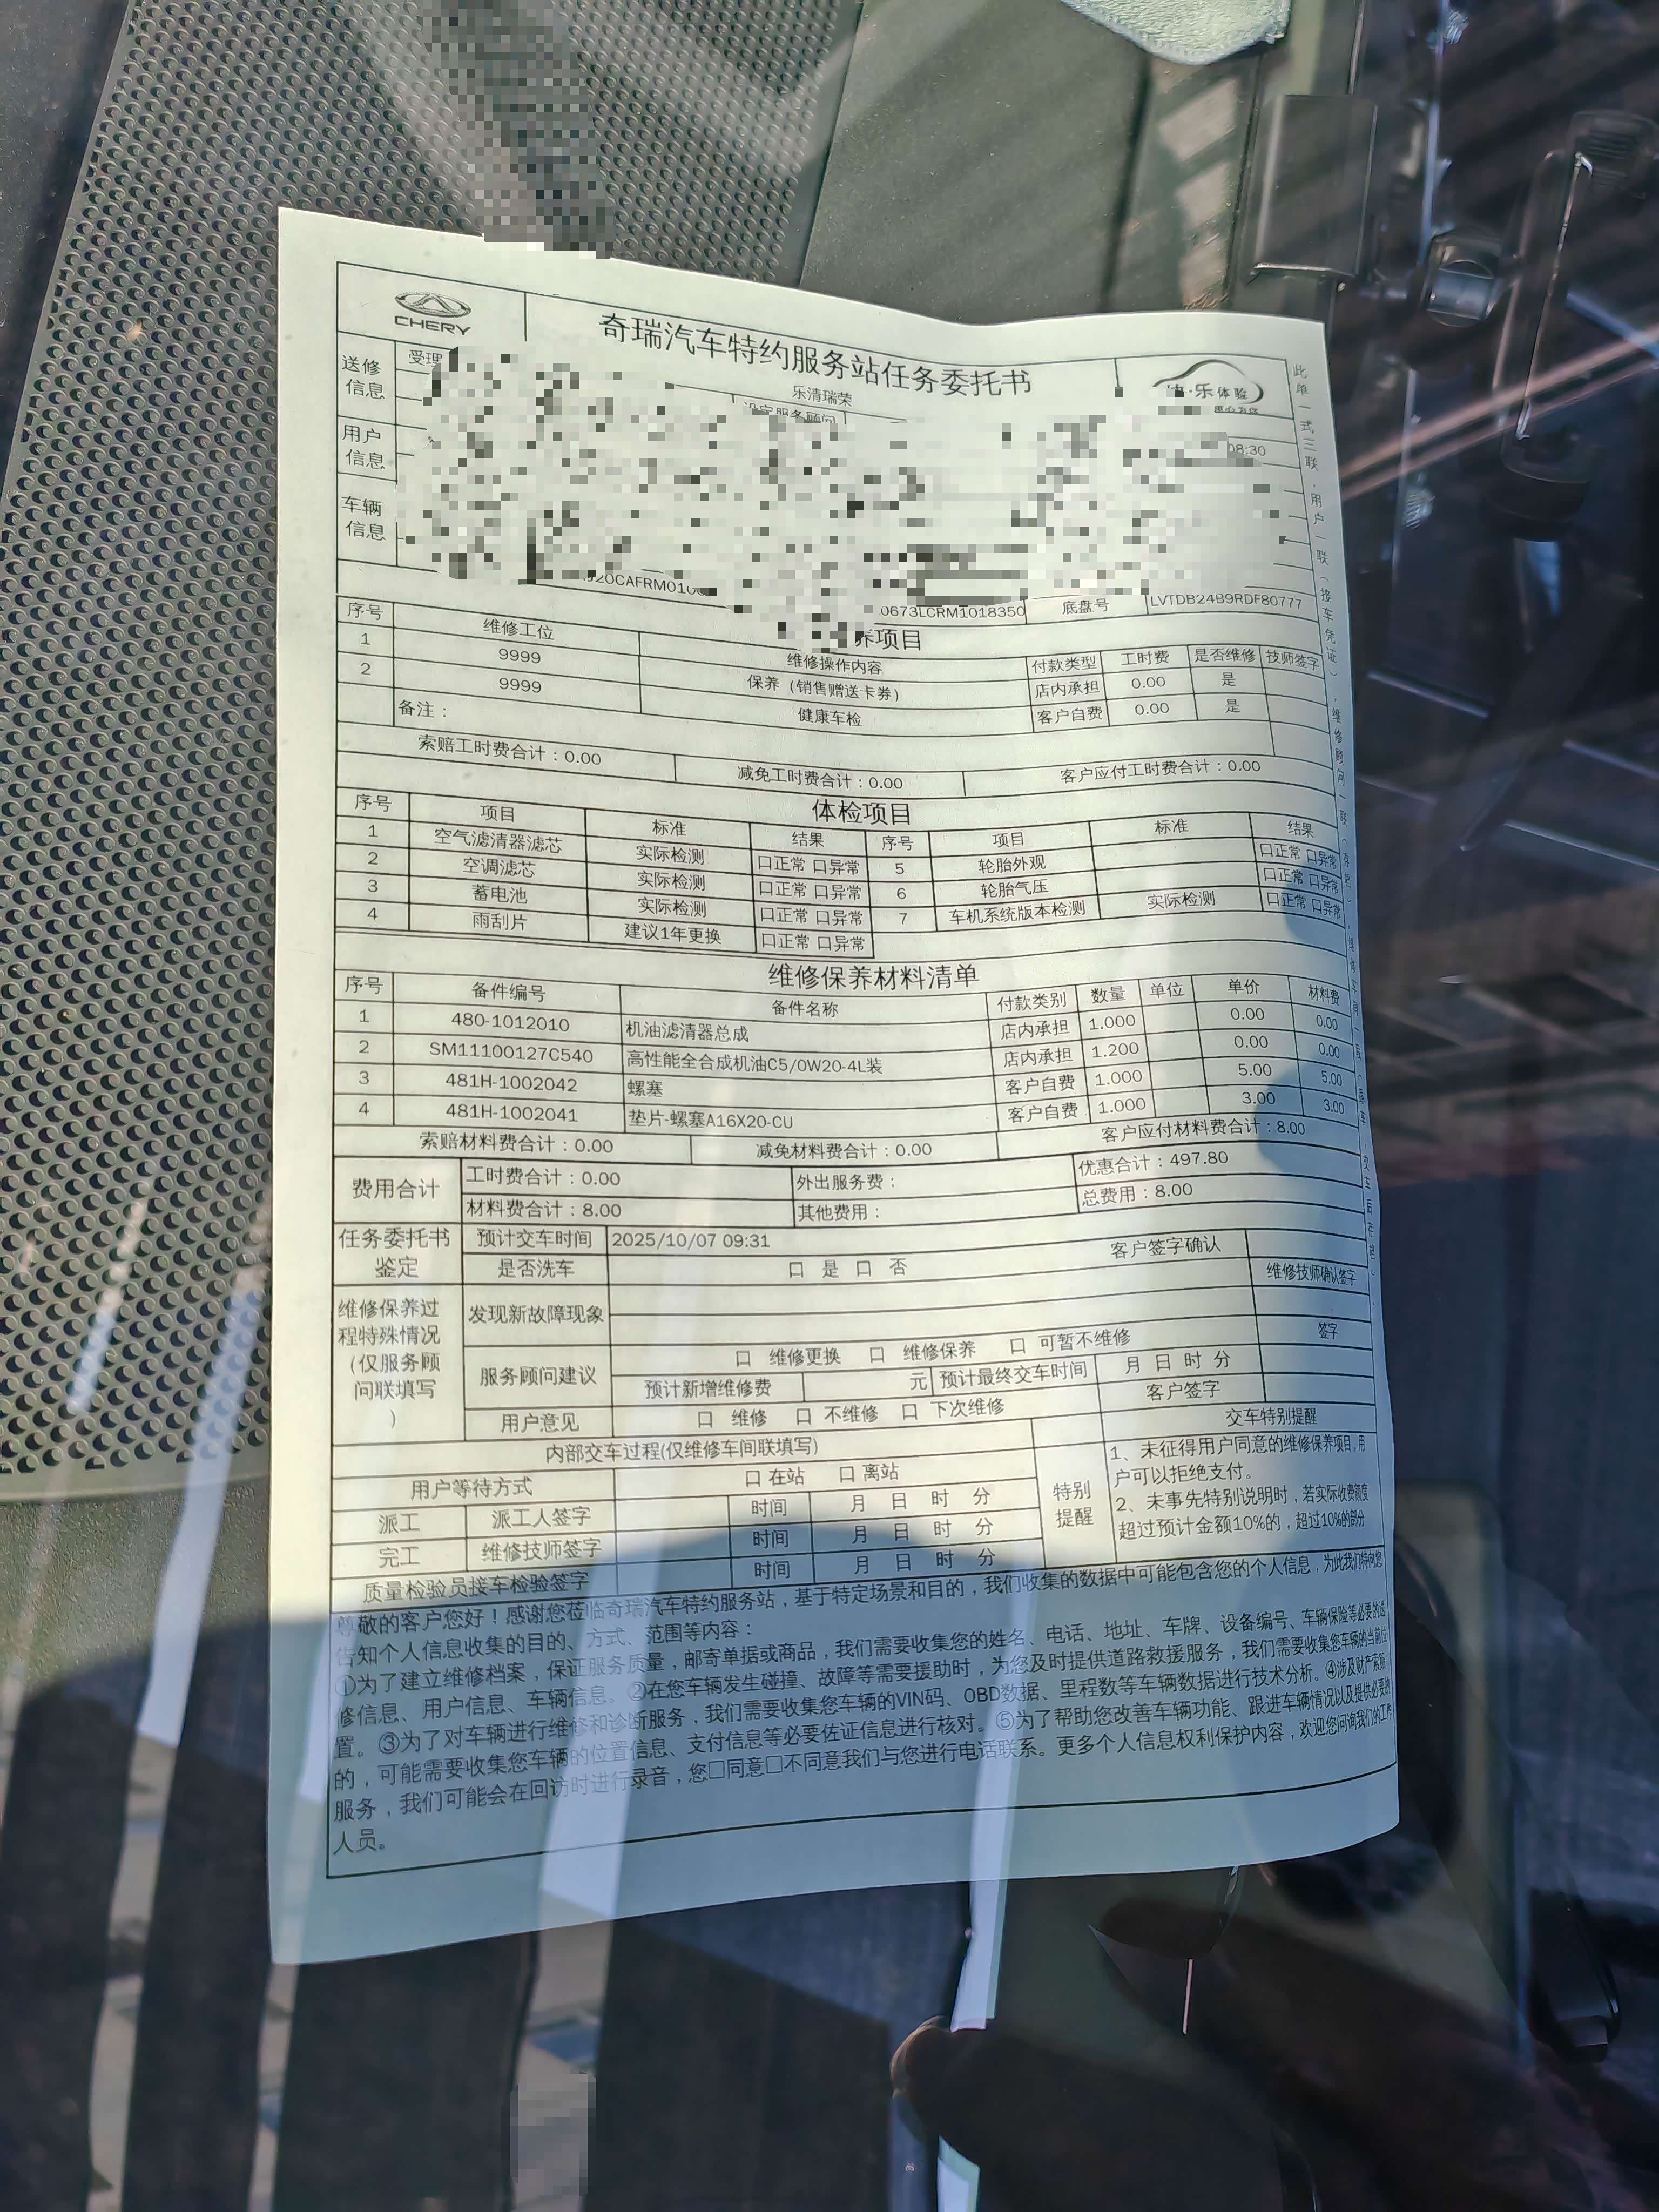 CHERY
奇瑞汽车特约服务站任务委托书
乐清瑞荣
乐体验
送修信息 受理
用户信息 08:30
车辆信息
0673LCRM1018350 底盘号 LVTDB24B9RDF80777
养项目
序号 维修工位 维修操作内容 付款类型 工时费 是否维修 技师签字
1 9999 保养（销售赠送卡券） 店内承担 0.00 是
2 9999 健康车检 客户自费 0.00 是
备注：
索赔工时费合计：0.00 减免工时费合计：0.00 客户应付工时费合计：0.00
体检项目
序号 项目 标准 结果 序号 项目 标准 结果
1 空气滤清器滤芯 实际检测 口正常 口异常 5 轮胎外观 口正常 口异常
2 空调滤芯 实际检测 口正常 口异常 6 轮胎气压 口正常 口异常
3 蓄电池 实际检测 口正常 口异常 7 车机系统版本检测 实际检测 口正常 口异常
4 雨刮片 建议1年更换 口正常 口异常
维修保养材料清单
序号 备件编号 备件名称 付款类别 数量 单位 单价 材料费
1 480-1012010 机油滤清器总成 店内承担 1.000 0.00 0.00
2 SM11100127C540 高性能全合成机油C5/0W20-4L装 店内承担 1.200 0.00 0.00
3 481H-1002042 螺塞 客户自费 1.000 5.00 5.00
4 481H-1002041 垫片-螺塞A16X20-CU 客户自费 1.000 3.00 3.00
索赔材料费合计：0.00 减免材料费合计：0.00 客户应付材料费合计：8.00
费用合计 工时费合计：0.00 外出服务费： 优惠合计：497.80
材料费合计：8.00 其他费用： 总费用：8.00
任务委托书鉴定 预计交车时间 2025/10/07 09:31 客户签字确认
是否洗车 口 是 口 否 维修技师确认签字
维修保养过程特殊情况（仅服务顾问联填写） 发现新故障现象
签字
服务顾问建议 口 维修更换 口 维修保养 口 可暂不维修
预计新增维修费 元 预计最终交车时间 月 日 时 分
用户意见 口 维修 口 不维修 口 下次维修 客户签字
内部交车过程(仅维修车间联填写) 交车特别提醒
用户等待方式 口 在站 口 离站
派工 派工人签字 时间 月 日 时 分
完工 维修技师签字 时间 月 日 时 分
质量检验员接车检验签字 时间 月 日 时 分
特别提醒
1、未征得用户同意的维修保养项目，用
户可以拒绝支付。
2、未事先特别说明时，若实际收费额度
超过预计金额10%的，超过10%的部分
尊敬的客户您好！感谢您莅临奇瑞汽车特约服务站，基于特定场景和目的，我们收集的数据中可能包含您的个人信息，为此我们特向您
告知个人信息收集的目的、方式、范围等内容：
①为了建立维修档案，保证服务质量，邮寄单据或商品，我们需要收集您的姓名、电话、地址、车牌、设备编号、车辆保险等必要的送
修信息、用户信息、车辆信息。②在您车辆发生碰撞、故障等需要援助时，为您及时提供道路救援服务，我们需要收集您车辆的当前位
置。③为了对车辆进行维修和诊断服务，我们需要收集您车辆的VIN码、OBD数据、里程数等车辆数据进行技术分析。④涉及财产索赔
的，可能需要收集您车辆的位置信息、支付信息等必要佐证信息进行核对。⑤为了帮助您改善车辆功能、跟进车辆情况以及提供必要的
服务，我们可能会在回访时进行录音，您口同意口不同意我们与您进行电话联系。更多个人信息权利保护内容，欢迎您问询我们的工作
人员。
此单一式三联，用户一联（接车凭证）